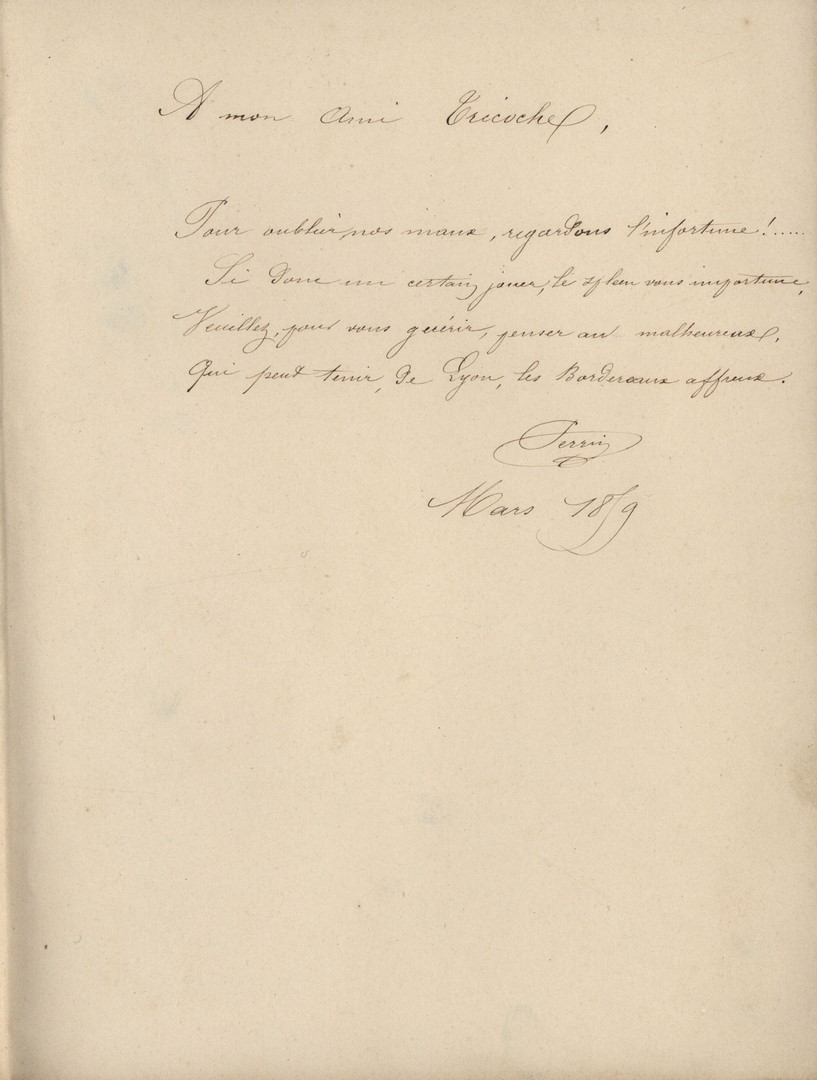 A mon Ami Tricoche,
Pour oublier nos maux, regardons l'infortune !.....
Si donc un certain jour, le spleen vous importune,
Veuillez, pour vous guérir, penser au malheureux,
Qui peut tenir, de Lyon, les Bordereaux affreux.
Perrin
Mars 1879